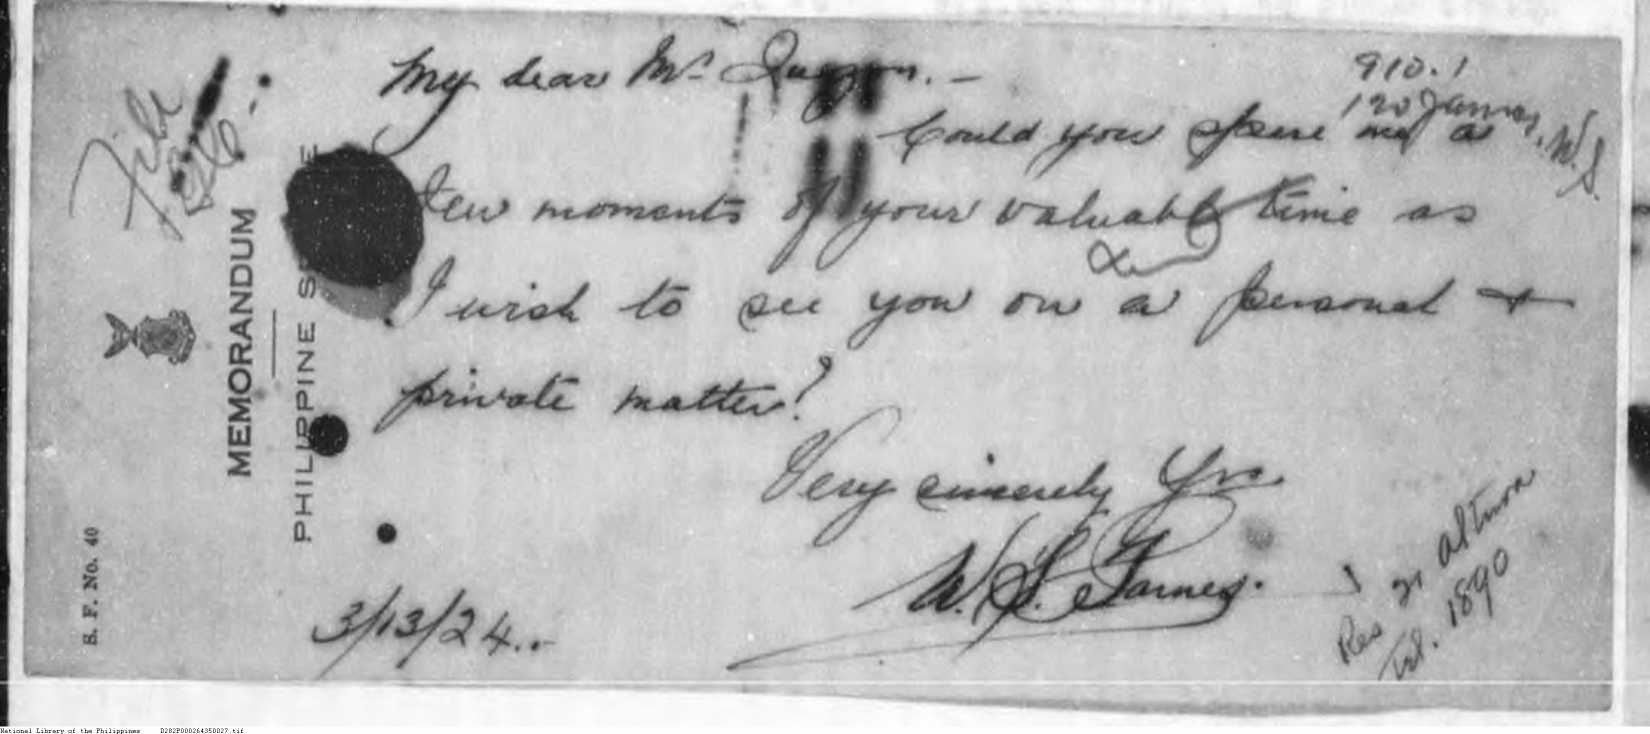 My dear Mr Quezon. -
Could you spare me a
few moments of your valuable time as
I wish to see you on a personal +
private matter?
Very sincerely Yrs
W. S. James.
3/13/24.
910.1
120 James, W.S.
File
MEMORANDUM
PHILIPPINE S
S. F. No. 40
Res 21
Tel. 1890
National Library of the Philippines D282P000264350027.tif